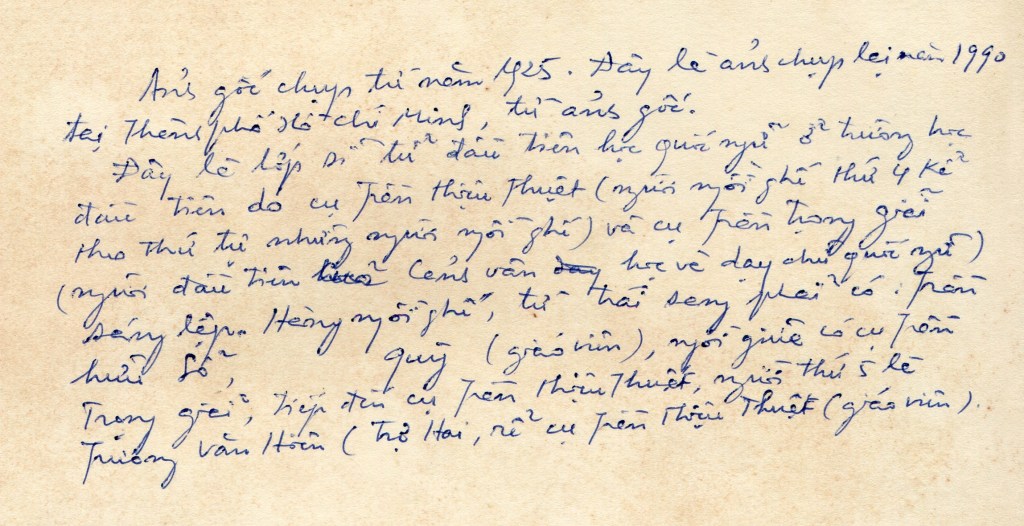 Ảnh gốc chụp từ năm 1925. Đây là ảnh chụp lại năm 1990
tại Thành phố Hồ Chí Minh, từ ảnh gốc.
Đây là lớp sĩ tử đầu tiên học quốc ngữ ở trường học
đầu tiên do cụ Trần Thiệu Thuyết (người ngồi ghế thứ 4 kể
theo thứ tự những người ngồi ghế) và cụ Trần Trọng Giải
(người đầu tiên Cảnh vân học và dạy chữ quốc ngữ)
sáng lập. Hàng ngồi ghế, từ trái sang phải có: Trần
hữu Sổ, Quỳ (giáo viên), ngồi giữa có cụ Trần
Trọng Giải, tiếp đến cụ Trần Thiệu Thuyết, người thứ 5 là
Trương Văn Hoàn (Trợ Hai, rể cụ Trần Thiệu Thuyết (giáo viên).